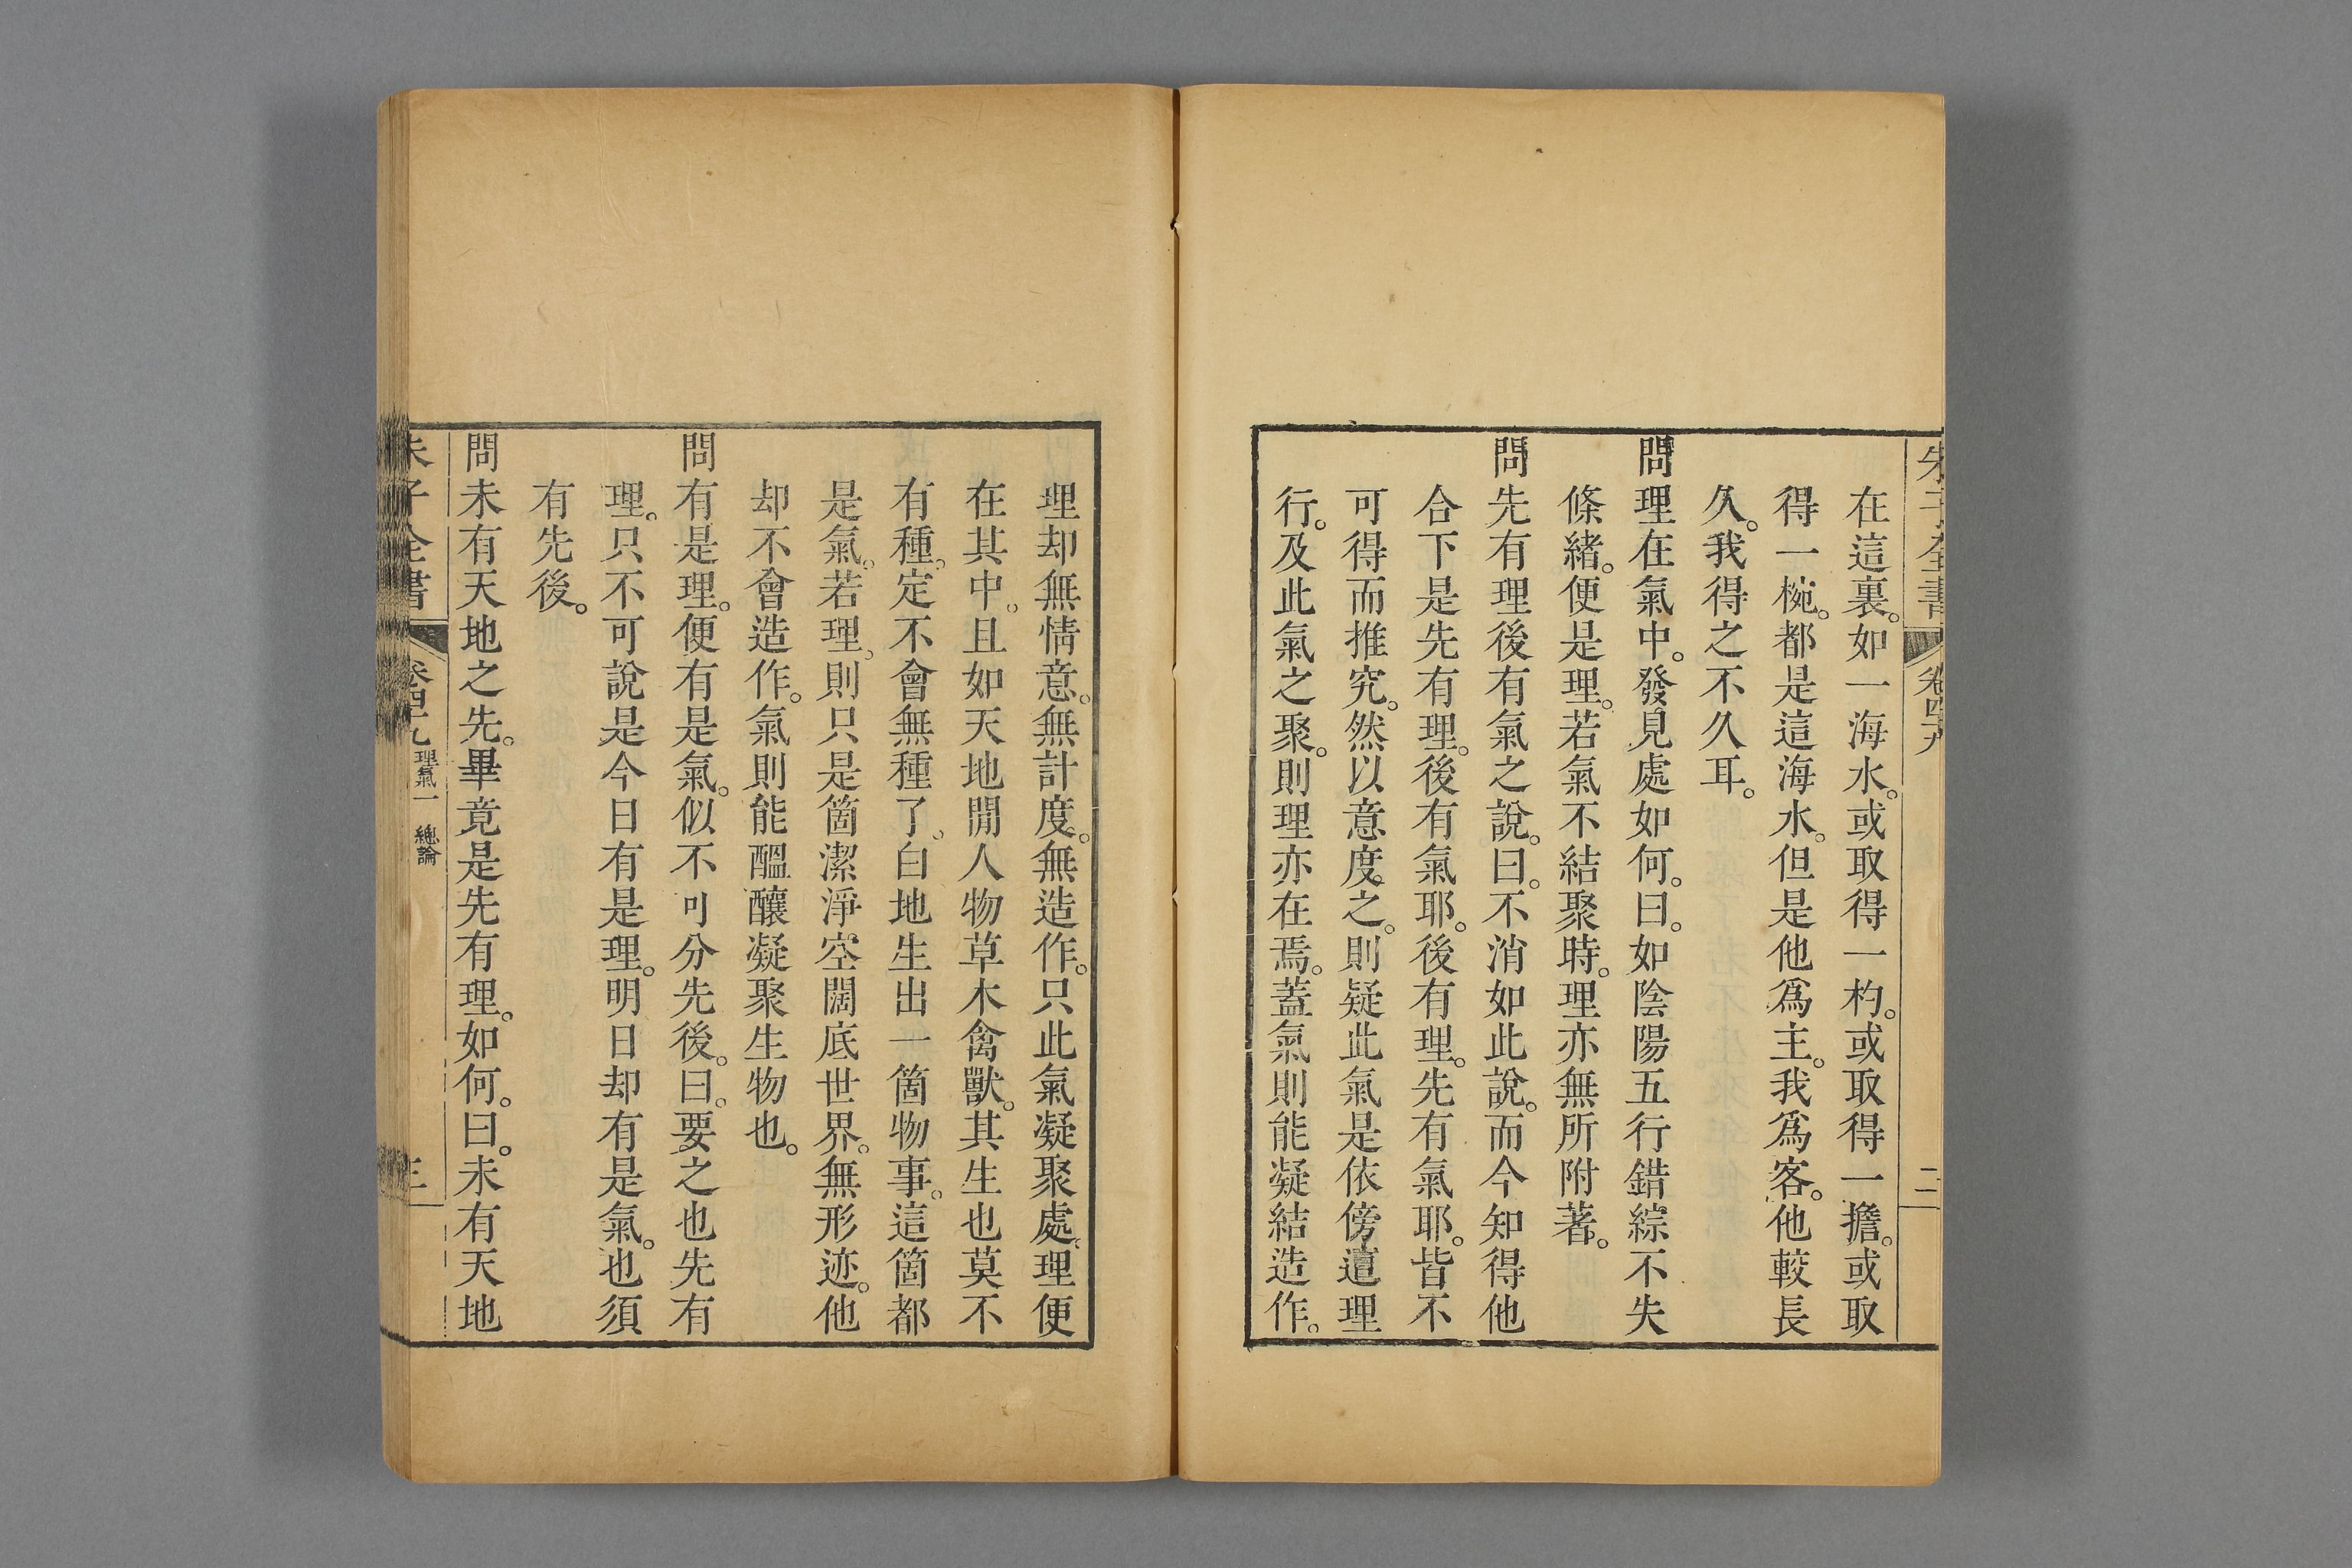 朱子全書 卷四十九 二
在這裏。如一海水。或取得一杓。或取得一擔。或取
得一椀。都是這海水。但是他爲主。我爲客。他較長
久。我得之不久耳。
問理在氣中。發見處如何。曰。如陰陽五行錯綜不失
條緒。便是理。若氣不結聚時。理亦無所附著。
問先有理後有氣之說。曰。不消如此說。而今知得他
合下是先有理。後有氣耶。後有理。先有氣耶。皆不
可得而推究。然以意度之。則疑此氣是依傍這理
行。及此氣之聚。則理亦在焉。蓋氣則能凝結造作。
理却無情意。無計度。無造作。只此氣凝聚處。理便
在其中。且如天地閒人物草木禽獸。其生也莫不
有種。定不會無種了。白地生出一箇物事。這箇都
是氣。若理。則只是箇潔淨空闊底世界。無形迹。他
却不會造作。氣則能醞釀凝聚生物也。
問有是理。便有是氣。似不可分先後。曰。要之也先有
理。只不可說是今日有是理。明日却有是氣。也須
有先後。
問未有天地之先。畢竟是先有理。如何。曰。未有天地
朱子全書 卷四十九 理氣一 總論 三